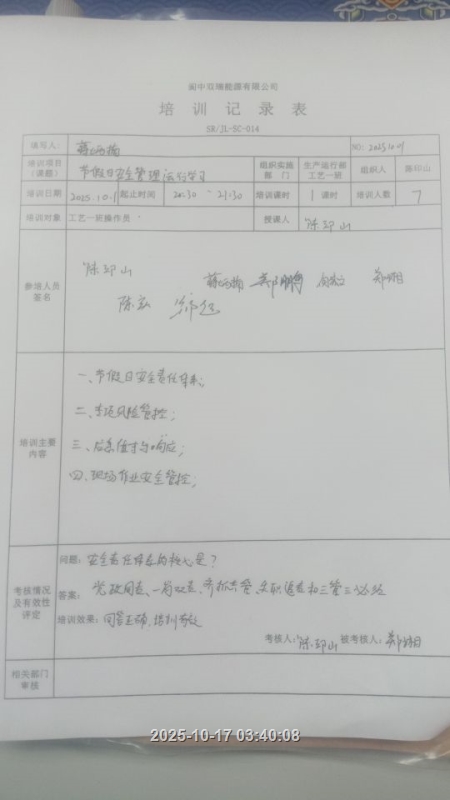 阆中双瑞能源有限公司
培训记录表
SR/JL-SC-014
填写人: NO: 20251001
培训项目(课题) 节假日安全管理运行学习 组织实施部门 生产运行部工艺一班 组织人 陈邛山
培训日期 2025.10.1 起止时间 20:30-21:30 培训课时 1课时 培训人数 7
培训对象 工艺一班操作员 授课人 陈邛山
参培人员签名
陈邛山
培训主要内容
一、节假日安全责任体系;
二、专项风险管控;
三、应急值守与响应;
四、现场作业安全管控;
考核情况及有效性评定
问题: 安全责任体系的核心是?
答案: 党政同责、一岗双责、齐抓共管、失职追责和三管三必须
培训效果: 回答正确、培训有效
考核人: 陈邛山 被考核人:
相关部门审核
2025-10-17 03:40:08